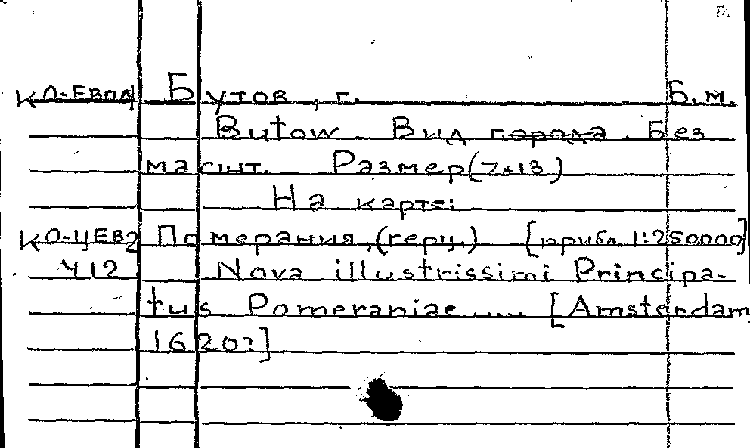 КО-ЕВПД Бутов, г. Б.м.
Butow. Вид города. Без
масшт. Размер (7x13)
На карте:
КО-ЦЕВ2 Померания, (герц.) [прибл. 1:250000]
Ч12 Nova illustrissimi Principa-
tus Pomeraniae .... [Amsterdam,
1620?]